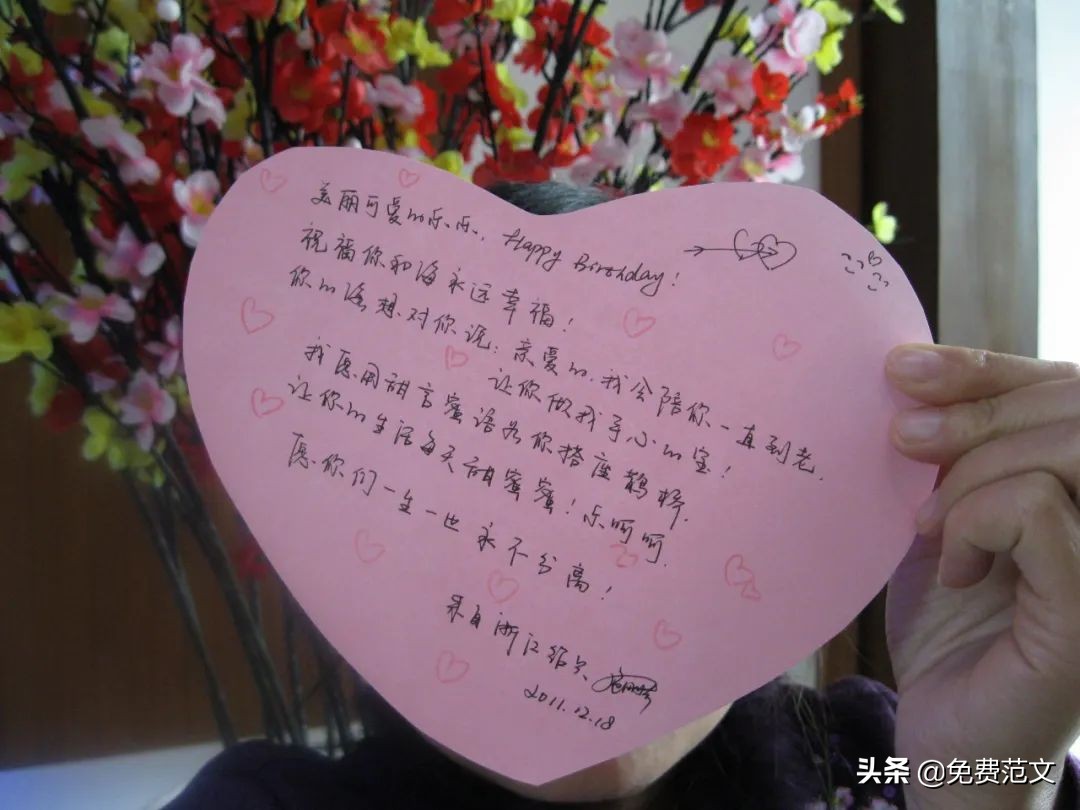 美丽可爱的乐乐，Happy Birthday!
祝福你和海永远幸福！
你的海想对你说：亲爱的，我会陪你一直到老，
让你做我手心的宝！
我愿用甜言蜜语为你搭座鹊桥，
让你的生活每天甜蜜蜜！乐呵呵．
愿你们一生一世永不分离！
来自浙江绍兴
2011.12.18
头条 @免费范文